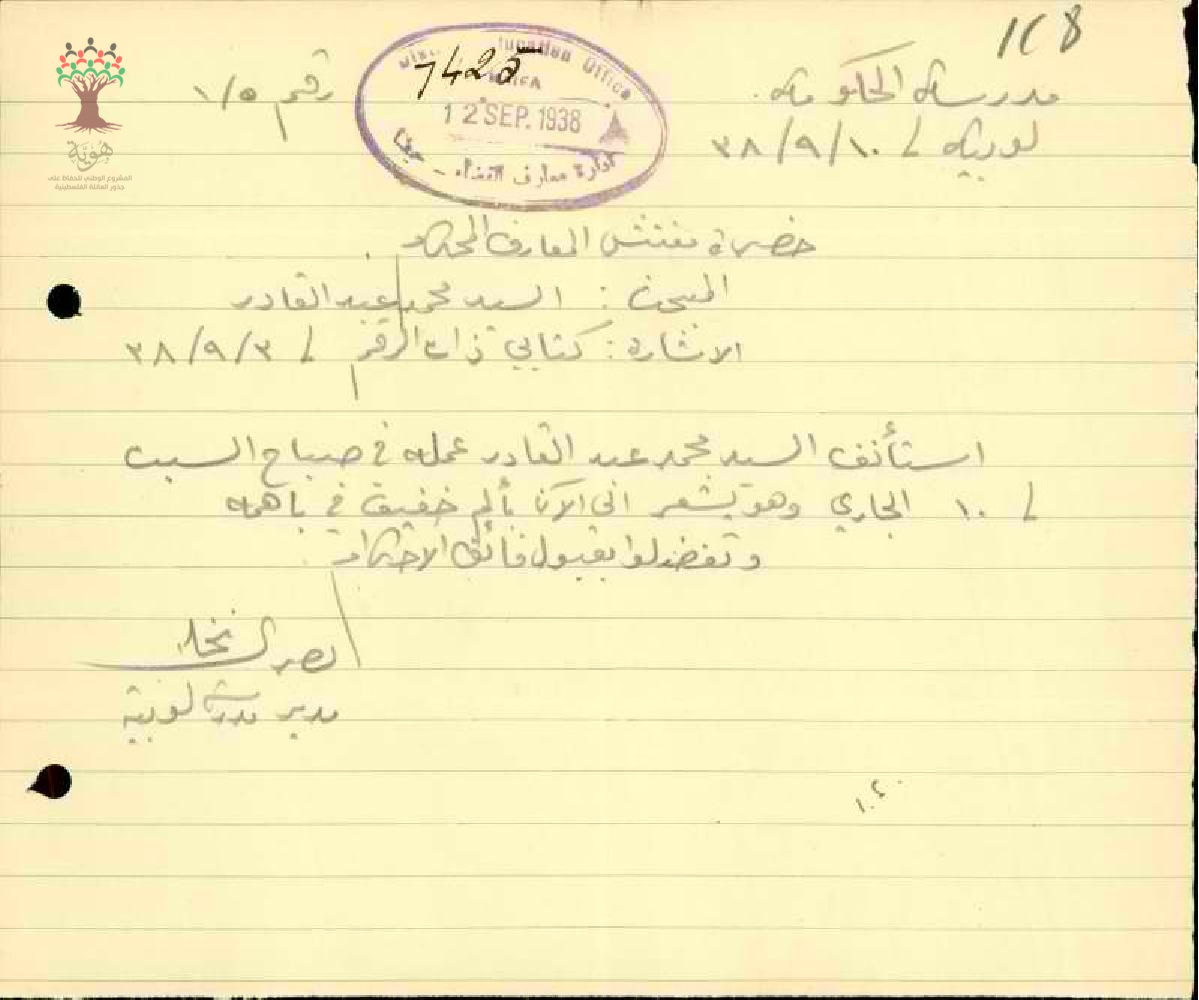 ١٢٨
مدرسة الحكومة
لوبية في ٣٨/٩/١٠
رقم ١/٥
District Education Office
HAIFA
7425
12 SEP. 1938
ادارة معارف القضاء - حيفا
هوية
المشروع الوطني للحفاظ على
جذور العائلة الفلسطينية
حضرة مفتش المعارف المحترم
المبحث : السيد محمد عبد القادر
الاشارة : كتابي ذات الرقم في ٣٨/٩/٣
استأنف السيد محمد عبد القادر عمله في صباح السبت
في ١٠ الجاري وهو يشعر الى الآن بألم خفيف في
وتفضلوا بقبول فائق الاحترام
نخله
مدير مدرسة لوبية